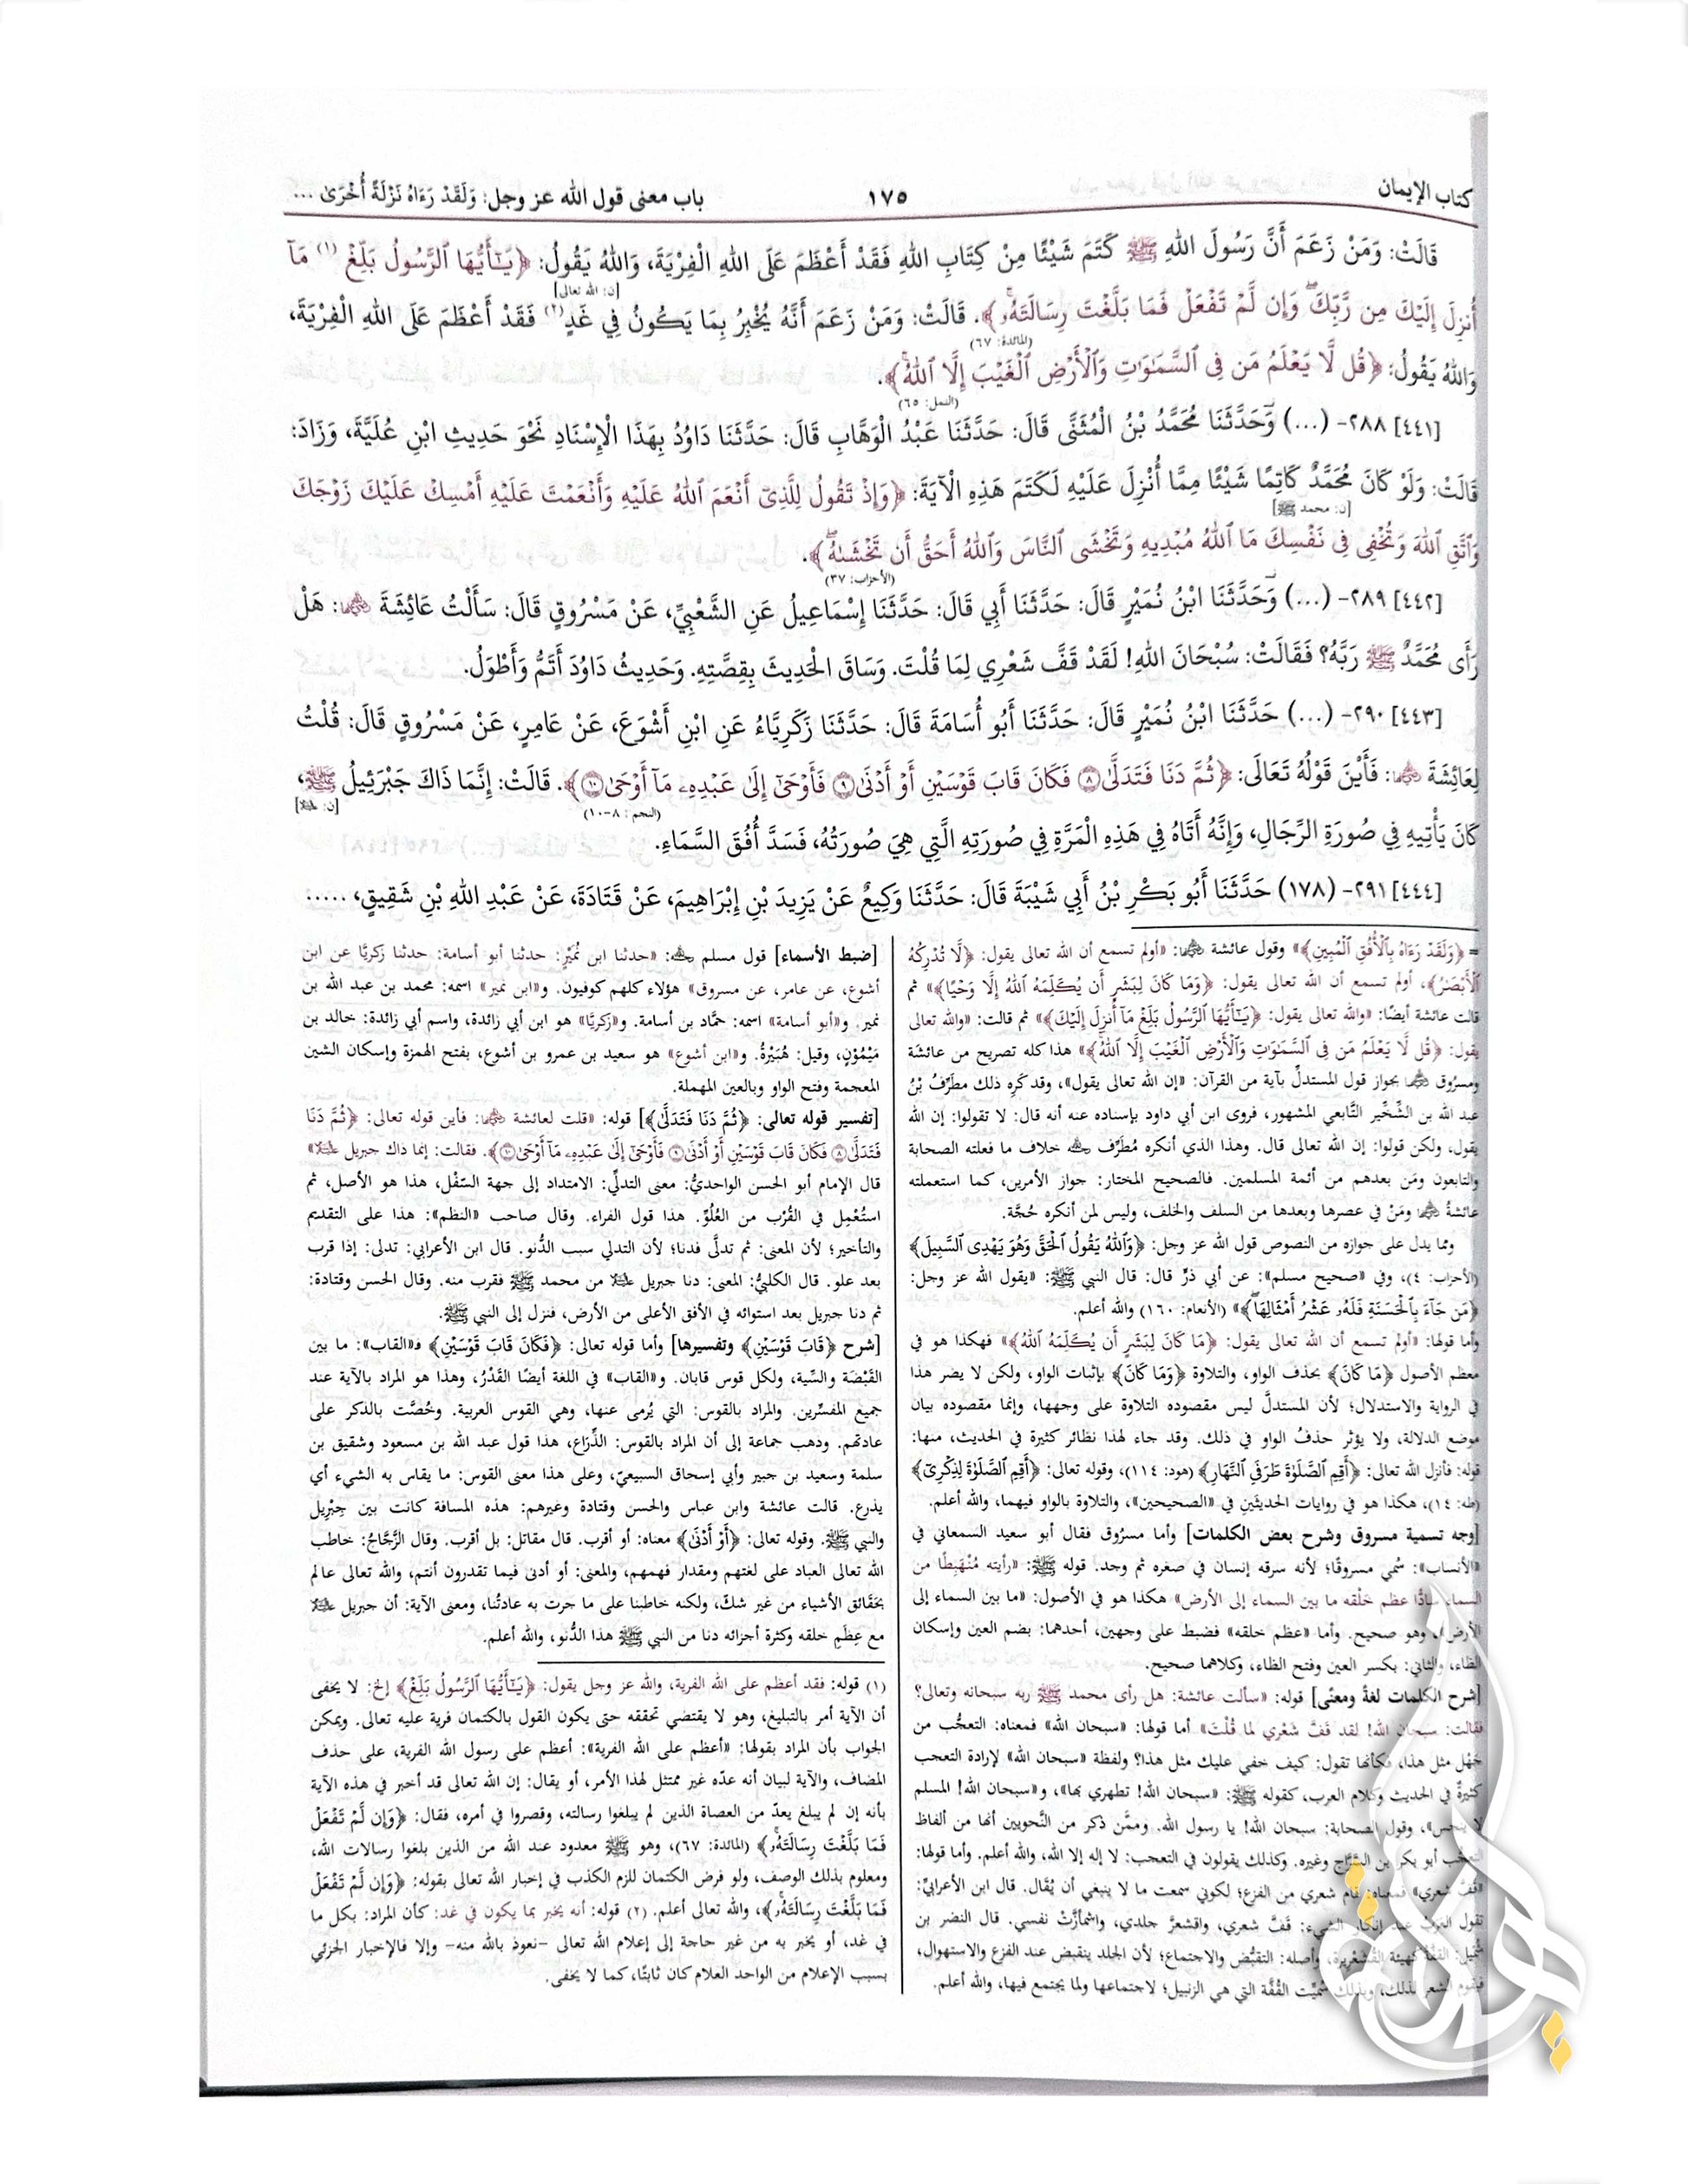 كتاب الإيمان ١٧٥ باب معنى قول الله عز وجل: وَلَقَدْ رَءَاهُ نَزْلَةً أُخْرَىٰ ...
قَالَتْ: وَمَنْ زَعَمَ أَنَّ رَسُولَ اللهِ ﷺ كَتَمَ شَيْئًا مِنْ كِتَابِ اللهِ فَقَدْ أَعْظَمَ عَلَى اللهِ الْفِرْيَةَ، وَاللهُ يَقُولُ: ﴿يَٰٓأَيُّهَا ٱلرَّسُولُ بَلِّغْ (١) مَآ
[ن: الله تعالى]
أُنزِلَ إِلَيْكَ مِن رَّبِّكَ ۖ وَإِن لَّمْ تَفْعَلْ فَمَا بَلَّغْتَ رِسَالَتَهُۥ ۚ﴾. قَالَتْ: وَمَنْ زَعَمَ أَنَّهُ يُخْبِرُ بِمَا يَكُونُ فِي غَدٍ (٢) فَقَدْ أَعْظَمَ عَلَى اللهِ الْفِرْيَةَ،
(المائدة: ٦٧)
وَاللهُ يَقُولُ: ﴿قُل لَّا يَعْلَمُ مَن فِى ٱلسَّمَٰوَٰتِ وَٱلْأَرْضِ ٱلْغَيْبَ إِلَّا ٱللَّهُ ۚ﴾.
(النمل: ٦٥)
[٤٤١] ٢٨٨- (...) وَحَدَّثَنَا مُحَمَّدُ بْنُ الْمُثَنَّى قَالَ: حَدَّثَنَا عَبْدُ الْوَهَّابِ قَالَ: حَدَّثَنَا دَاوُدُ بِهَذَا الْإِسْنَادِ نَحْوَ حَدِيثِ ابْنِ عُلَيَّةَ، وَزَادَ:
قَالَتْ: وَلَوْ كَانَ مُحَمَّدٌ كَاتِمًا شَيْئًا مِمَّا أُنْزِلَ عَلَيْهِ لَكَتَمَ هَذِهِ الْآيَةَ: ﴿وَإِذْ تَقُولُ لِلَّذِىٓ أَنْعَمَ ٱللَّهُ عَلَيْهِ وَأَنْعَمْتَ عَلَيْهِ أَمْسِكْ عَلَيْكَ زَوْجَكَ
[ن: محمد ﷺ]
وَٱتَّقِ ٱللَّهَ وَتُخْفِى فِى نَفْسِكَ مَا ٱللَّهُ مُبْدِيهِ وَتَخْشَى ٱلنَّاسَ وَٱللَّهُ أَحَقُّ أَن تَخْشَىٰهُ ۖ﴾.
(الأحزاب: ٣٧)
[٤٤٢] ٢٨٩- (...) وَحَدَّثَنَا ابْنُ نُمَيْرٍ قَالَ: حَدَّثَنَا أَبِي قَالَ: حَدَّثَنَا إِسْمَاعِيلُ عَنِ الشَّعْبِيِّ، عَنْ مَسْرُوقٍ قَالَ: سَأَلْتُ عَائِشَةَ رضي الله عنها: هَلْ
رَأَى مُحَمَّدٌ ﷺ رَبَّهُ؟ فَقَالَتْ: سُبْحَانَ اللهِ! لَقَدْ قَفَّ شَعْرِي لِمَا قُلْتَ. وَسَاقَ الْحَدِيثَ بِقِصَّتِهِ. وَحَدِيثُ دَاوُدَ أَتَمُّ وَأَطْوَلُ.
[٤٤٣] ٢٩٠- (...) حَدَّثَنَا ابْنُ نُمَيْرٍ قَالَ: حَدَّثَنَا أَبُو أُسَامَةَ قَالَ: حَدَّثَنَا زَكَرِيَّاءُ عَنِ ابْنِ أَشْوَعَ، عَنْ عَامِرٍ، عَنْ مَسْرُوقٍ قَالَ: قُلْتُ
لِعَائِشَةَ رضي الله عنها: فَأَيْنَ قَوْلُهُ تَعَالَى: ﴿ثُمَّ دَنَا فَتَدَلَّىٰ ٨ فَكَانَ قَابَ قَوْسَيْنِ أَوْ أَدْنَىٰ ٩ فَأَوْحَىٰٓ إِلَىٰ عَبْدِهِۦ مَآ أَوْحَىٰ ١٠﴾. قَالَتْ: إِنَّمَا ذَاكَ جَبْرَئِيلُ ﷺ،
(النجم: ٨-١٠) [ن: عليه السلام]
كَانَ يَأْتِيهِ فِي صُورَةِ الرِّجَالِ، وَإِنَّهُ أَتَاهُ فِي هَذِهِ الْمَرَّةِ فِي صُورَتِهِ الَّتِي هِيَ صُورَتُهُ، فَسَدَّ أُفُقَ السَّمَاءِ.
[٤٤٤] ٢٩١- (١٧٨) حَدَّثَنَا أَبُو بَكْرِ بْنُ أَبِي شَيْبَةَ قَالَ: حَدَّثَنَا وَكِيعٌ عَنْ يَزِيدَ بْنِ إِبْرَاهِيمَ، عَنْ قَتَادَةَ، عَنْ عَبْدِ اللهِ بْنِ شَقِيقٍ، .....
= ﴿وَلَقَدْ رَءَاهُ بِٱلْأُفُقِ ٱلْمُبِينِ﴾» وقول عائشة رضي الله عنها: «أولم تسمع أن الله تعالى يقول: ﴿لَّا تُدْرِكُهُ
ٱلْأَبْصَٰرُ﴾، أولم تسمع أن الله تعالى يقول: ﴿وَمَا كَانَ لِبَشَرٍ أَن يُكَلِّمَهُ ٱللَّهُ إِلَّا وَحْيًا﴾» ثم
قالت عائشة أيضًا: «والله تعالى يقول: ﴿يَٰٓأَيُّهَا ٱلرَّسُولُ بَلِّغْ مَآ أُنزِلَ إِلَيْكَ﴾» ثم قالت: «والله تعالى
يقول: ﴿قُل لَّا يَعْلَمُ مَن فِى ٱلسَّمَٰوَٰتِ وَٱلْأَرْضِ ٱلْغَيْبَ إِلَّا ٱللَّهُ﴾» هذا كله تصريح من عائشة
ومسرُوق رضي الله عنهما بجواز قول المستدلِّ بآية من القرآن: «إن الله تعالى يقول»، وقد كَرِه ذلك مطَرِّفُ بْنُ
عبد الله بن الشِّخِّير التَّابعي المشهور، فروى ابن أبي داود بإسناده عنه أنه قال: لا تقولوا: إن الله
يقول، ولكن قولوا: إن الله تعالى قال. وهذا الذي أنكره مُطَرِّف رحمه الله خلاف ما فعلته الصحابة
والتابعون ومَن بعدهم من أئمة المسلمين. فالصحيح المختار: جواز الأمرين، كما استعملته
عائشةُ رضي الله عنها ومَنْ في عصرها وبعدها من السلف والخلف، وليس لمن أنكره حُجَّة.
ومما يدل على جوازه من النصوص قول الله عز وجل: ﴿وَٱللَّهُ يَقُولُ ٱلْحَقَّ وَهُوَ يَهْدِى ٱلسَّبِيلَ﴾
(الأحزاب: ٤)، وفي «صحيح مسلم»: عن أبي ذرٍّ قال: قال النبي ﷺ: «يقول الله عز وجل:
﴿مَن جَآءَ بِٱلْحَسَنَةِ فَلَهُۥ عَشْرُ أَمْثَالِهَا ۖ﴾» (الأنعام: ١٦٠) والله أعلم.
وأما قولها: «أولم تسمع أن الله تعالى يقول: ﴿مَا كَانَ لِبَشَرٍ أَن يُكَلِّمَهُ ٱللَّهُ﴾» فهكذا هو في
معظم الأصول ﴿مَا كَانَ﴾ بحذف الواو، والتلاوة ﴿وَمَا كَانَ﴾ بإثبات الواو، ولكن لا يضر هذا
في الرواية والاستدلال؛ لأن المستدلَّ ليس مقصوده التلاوة على وجهها، وإنما مقصوده بيان
موضع الدلالة، ولا يؤثر حذفُ الواو في ذلك. وقد جاء لهذا نظائر كثيرة في الحديث، منها:
قوله: فأنزل الله تعالى: ﴿أَقِمِ ٱلصَّلَوٰةَ طَرَفَىِ ٱلنَّهَارِ﴾ (هود: ١١٤)، وقوله تعالى: ﴿أَقِمِ ٱلصَّلَوٰةَ لِذِكْرِىٓ﴾
(طه: ١٤)، هكذا هو في روايات الحديثَينِ في «الصحيحين»، والتلاوة بالواو فيهما، والله أعلم.
[وجه تسمية مسروق وشرح بعض الكلمات] وأما مسرُوق فقال أبو سعيد السمعاني في
«الأنساب»: سُمي مسروقًا؛ لأنه سرقه إنسان في صغره ثم وجد. قوله ﷺ: «رأيته مُنْهَبِطًا من
السماء سادًّا عظم خلْقه ما بين السماء إلى الأرض» هكذا هو في الأصول: «ما بين السماء إلى
الأرض»، وهو صحيح. وأما «عظم خلقه» فضبط على وجهين، أحدهما: بضم العين وإسكان
الظاء، والثاني: بكسر العين وفتح الظاء، وكلاهما صحيح.
[شرح الكلمات لغةً ومعنًى] قوله: «سألت عائشة: هل رأى محمد ﷺ ربه سبحانه وتعالى؟
فقالت: سبحان الله! لقد قَفَّ شعْري لما قُلْتَ» أما قولها: «سبحان الله» فمعناه: التعجُّب من
جَهْل مثل هذا، فكأنها تقول: كيف خفي عليك مثل هذا؟ ولفظة «سبحان الله» لإرادة التعجب
كثيرةٌ في الحديث وكلام العرب، كقوله ﷺ: «سبحان الله! تطهري بها»، و«سبحان الله! المسلم
لا ينجس»، وقول الصحابة: سبحان الله! يا رسول الله. وممَّن ذكر من النَّحويين أنها من ألفاظ
التعجُّب أبو بكر بن السَّرَّاج وغيره. وكذلك يقولون في التعجب: لا إله إلا الله، والله أعلم. وأما قولها:
«قَفَّ شعري» فمعناه: قام شعري من الفزع؛ لكوني سمعت ما لا ينبغي أن يُقَال. قال ابن الأعرابيِّ:
تقول العرب عند إنكار الشيء: قَفَّ شعري، واقشعرَّ جلدي، واشمأزَّتْ نفسي. قال النضر بن
شُمَيل: القَفَّة كهيئة القُشَعْرِيرة، وأصله: التقبُّض والاجتماع؛ لأن الجلد ينقبض عند الفزع والاستهوال،
فيقوم الشعر لذلك، وبذلك سُمِّيت القُفَّة التي هي الزنبيل؛ لاجتماعها ولما يجتمع فيها، والله أعلم.
[ضبط الأسماء] قول مسلم رحمه الله: «حدثنا ابن نُمَيْرٍ: حدثنا أبو أسامة: حدثنا زكريَّا عن ابن
أشوع، عن عامر، عن مسروق» هؤلاء كلهم كوفيون. و«ابن نمير» اسمه: محمد بن عبد الله بن
نمير. و«أبو أسامة» اسمه: حمَّاد بن أسامة. و«زكريَّا» هو ابن أبي زائدة، واسم أبي زائدة: خالد بن
مَيْمُوْنٍ، وقيل: هُبَيْرَةُ. و«ابن أشوع» هو سعيد بن عمرو بن أشوع، بفتح الهمزة وإسكان الشين
المعجمة وفتح الواو وبالعين المهملة.
[تفسير قوله تعالى: ﴿ثُمَّ دَنَا فَتَدَلَّىٰ﴾] قوله: «قلت لعائشة رضي الله عنها: فأين قوله تعالى: ﴿ثُمَّ دَنَا
فَتَدَلَّىٰ ٨ فَكَانَ قَابَ قَوْسَيْنِ أَوْ أَدْنَىٰ ٩ فَأَوْحَىٰٓ إِلَىٰ عَبْدِهِۦ مَآ أَوْحَىٰ ١٠﴾. فقالت: إنما ذاك جبريل عليه السلام»
قال الإمام أبو الحسن الواحديُّ: معنى التدلِّي: الامتداد إلى جهة السّفْل، هذا هو الأصل، ثم
استُعْمِل في القُرْب من العُلُوِّ. هذا قول الفراء. وقال صاحب «النظم»: هذا على التقديم
والتأخير؛ لأن المعنى: ثم تدلَّى فدنا؛ لأن التدلي سبب الدُّنو. قال ابن الأعرابي: تدلى: إذا قرب
بعد علو. قال الكلبيُّ: المعنى: دنا جبريل عليه السلام من محمد ﷺ فقرب منه. وقال الحسن وقتادة:
ثم دنا جبريل بعد استوائه في الأفق الأعلى من الأرض، فنزل إلى النبي ﷺ.
[شرح ﴿قَابَ قَوْسَيْنِ﴾ وتفسيرها] وأما قوله تعالى: ﴿فَكَانَ قَابَ قَوْسَيْنِ﴾ فـ«القاب»: ما بين
القَبْضَة والسِّية، ولكل قوس قابان. و«القاب» في اللغة أيضًا القَدْرُ، وهذا هو المراد بالآية عند
جميع المفسِّرين. والمراد بالقوس: التي يُرمى عنها، وهي القوس العربية. وخُصَّت بالذكر على
عادتهم. وذهب جماعة إلى أن المراد بالقوس: الذِّرَاع، هذا قول عبد الله بن مسعود وشقيق بن
سلمة وسعيد بن جبير وأبي إسحاق السبيعيّ، وعلى هذا معنى القوس: ما يقاس به الشيء أي
يذرع. قالت عائشة وابن عباس والحسن وقتادة وغيرهم: هذه المسافة كانت بين جِبْرِيل
والنبي ﷺ. وقوله تعالى: ﴿أَوْ أَدْنَىٰ﴾ معناه: أو أقرب. قال مقاتل: بل أقرب. وقال الزَّجَّاجُ: خاطب
الله تعالى العباد على لغتهم ومقدار فهمهم، والمعنى: أو أدنى فيما تقدرون أنتم، والله تعالى عالم
بحَقَائق الأشياء من غير شكّ، ولكنه خاطبنا على ما جرت به عادتُنا، ومعنى الآية: أن جبريل عليه السلام
مع عِظَم خلقه وكثرة أجزائه دنا من النبي ﷺ هذا الدُّنو، والله أعلم.
(١) قوله: فقد أعظم على الله الفرية، والله عز وجل يقول: ﴿يَٰٓأَيُّهَا ٱلرَّسُولُ بَلِّغْ﴾ إلخ: لا يخفى
أن الآية أمر بالتبليغ، وهو لا يقتضي تحققه حتى يكون القول بالكتمان فرية عليه تعالى. ويمكن
الجواب بأن المراد بقولها: «أعظم على الله الفرية»: أعظم على رسول الله الفرية، على حذف
المضاف، والآية لبيان أنه عدّه غير ممتثل لهذا الأمر، أو يقال: إن الله تعالى قد أخبر في هذه الآية
بأنه إن لم يبلغ يعدّ من العصاة الذين لم يبلغوا رسالته، وقصروا في أمره، فقال: ﴿وَإِن لَّمْ تَفْعَلْ
فَمَا بَلَّغْتَ رِسَالَتَهُۥ ۚ﴾ (المائدة: ٦٧)، وهو ﷺ معدود عند الله من الذين بلغوا رسالات الله،
ومعلوم بذلك الوصف، ولو فرض الكتمان للزم الكذب في إخبار الله تعالى بقوله: ﴿وَإِن لَّمْ تَفْعَلْ
فَمَا بَلَّغْتَ رِسَالَتَهُۥ ۚ﴾، والله تعالى أعلم. (٢) قوله: أنه يخبر بما يكون في غد: كأن المراد: بكل ما
في غد، أو يخبر به من غير حاجة إلى إعلام الله تعالى -نعوذ بالله منه- وإلا فالإخبار الجزئي
بسبب الإعلام من الواحد العلام كان ثابتًا، كما لا يخفى.